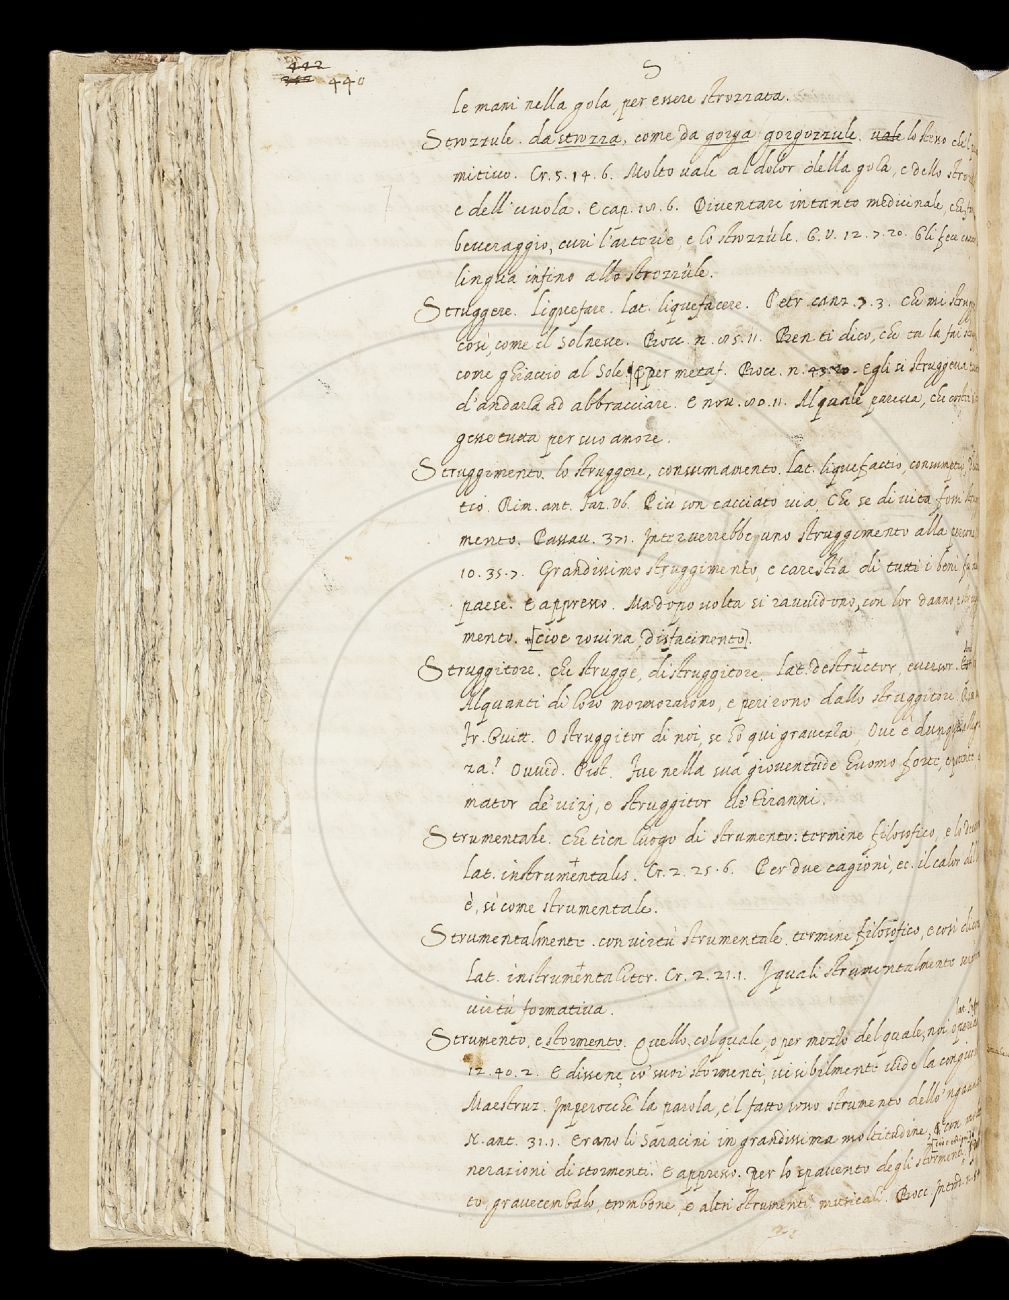 442
440
S
le mani nella gola, per essere strozzata.
Strozzule. da strozza, come da gorga gorgozzule. vale lo stesso che
mitivo. Cr. 5. 14. 6. Molto vale al dolor della gola, e dello
e dell'uvola. E cap. 6. Diventare intanto medicinale, che
beveraggio, curi l'arterie, e lo strozzule. G. V. 12. 7. 20. Gli
lingua infino allo strozzule.
Struggere. Liquefare. Lat. liquefacere. Petr. canz. 7. 3. Che mi
così, come il Sol neve. Bocc. n. 85. 11. Ben ti dico, che tu la fai
come ghiaccio al Sole. per metaf. Bocc. n. 43. 20. Egli si struggeva
d'andarla ad abbracciare. E nov. 80. 11. Al quale pareva, che
gesse tutta per suo amore.
Struggimento. lo struggere, consumamento. Lat. liquefactio,
tio. Rim. ant. Più son cacciato via, che se di vita
mento. Passav. 371. Interverrebbe uno struggimento alla
10. 35. 7. Grandissimo struggimento, e carestia di tutti i beni
paese. E appresso. Ma dopo volta si ravvidono, con lor danno,
mento. [cioe rovina, disfacimento].
Struggitore. che strugge, distruggitore. Lat. destructor, eversor.
Alquanti di loro mormorarono, e perirono dallo struggitore.
Fr. Guitt. O struggitor di noi, se qui graverza. Ove è
za? Ovvid. Pist. Fue nella sua gioventude huomo forte, e
mator de' vizj, e struggitor de' tiranni.
Strumentale. che tien luogo di strumento: termine filosofico, e lo
Lat. instrumentalis. Cr. 2. 25. 6. Per due cagioni, ec. il calor
è, sì come strumentale.
Strumentalmente. con virtù strumentale. termine filosofico, e così
Lat. instrumentaliter. Cr. 2. 21. 1. I quali strumentalmente
virtù formativa.
Strumento, e stormento. Quello, col quale, o per mezzo del quale, noi
12. 40. 2. E dissene, co' suoi stormenti, visibilmente vide la
Maestruz. Imperocchè la parola, e 'l fatto sono strumento dello
N. ant. 31. 1. Erano li Saracini in grandissima moltitudine, e con
nerazioni di stormenti. E appresso. Per lo spavento degli stormenti
to, gravecembalo, trombone, e altri strumenti musicali. Bocc.